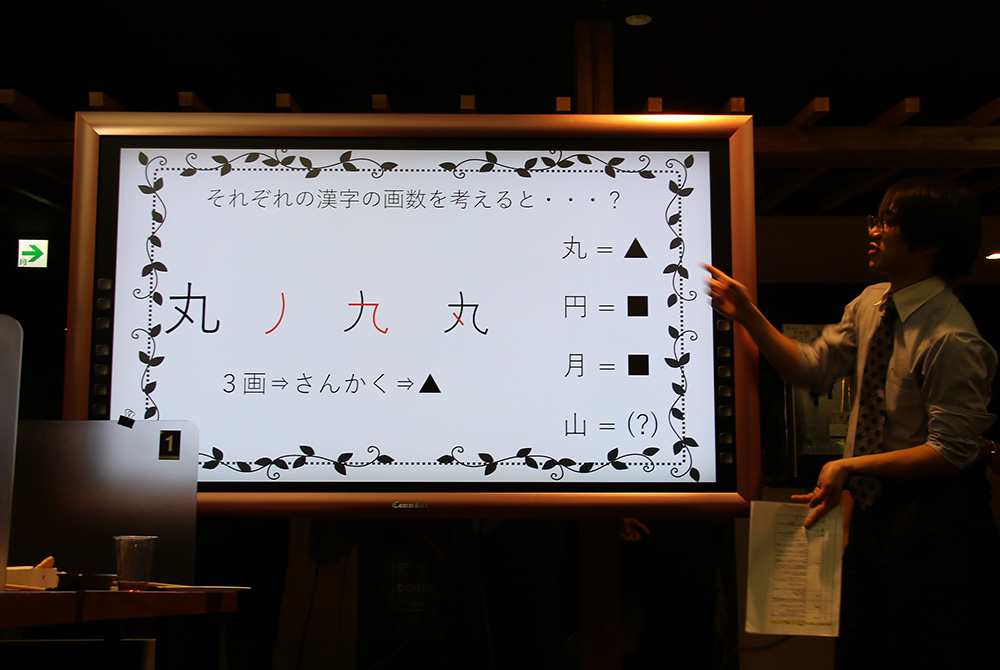 それぞれの漢字の画数を考えると・・・？
丸 ノ 九 丸
３画⇒さんかく⇒▲
丸 = ▲
円 = ■
月 = ■
山 = (?)
1